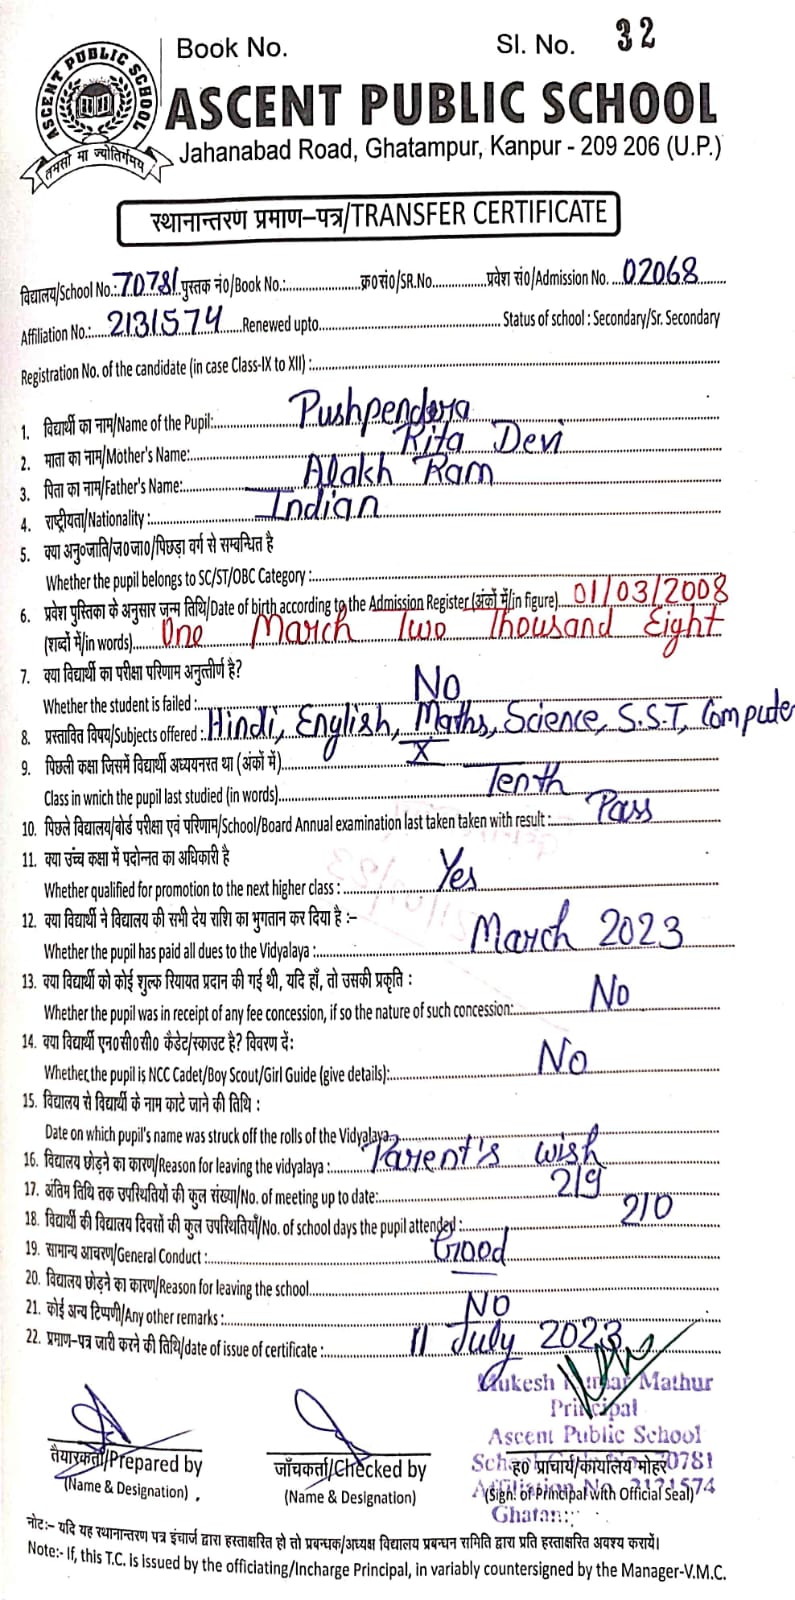 Book No. Sl. No. 32
ASCENT PUBLIC SCHOOL
तमसो मा ज्योतिर्गमय
ASCENT PUBLIC SCHOOL
Jahanabad Road, Ghatampur, Kanpur - 209 206 (U.P.)
स्थानान्तरण प्रमाण–पत्र/TRANSFER CERTIFICATE
विद्यालय/School No.: 70781 पुस्तक नं०/Book No.: क्र०सं०/SR.No. प्रवेश सं०/Admission No. 02068
Affiliation No.: 2131574 Renewed upto Status of school : Secondary/Sr. Secondary
Registration No. of the candidate (in case Class-IX to XII) :
1. विद्यार्थी का नाम/Name of the Pupil: Pushpendera
2. माता का नाम/Mother's Name: Rita Devi
3. पिता का नाम/Father's Name: Alakh Ram
4. राष्ट्रीयता/Nationality : Indian
5. क्या अनु०जाति/ज०जा०/पिछड़ा वर्ग से सम्बन्धित है
Whether the pupil belongs to SC/ST/OBC Category :
6. प्रवेश पुस्तिका के अनुसार जन्म तिथि/Date of birth according to the Admission Register (अंकों में/in figure) 01/03/2008
(शब्दों में/in words) One March Two Thousand Eight
7. क्या विद्यार्थी का परीक्षा परिणाम अनुत्तीर्ण है?
Whether the student is failed : No
8. प्रस्तावित विषय/Subjects offered : Hindi, English, Maths, Science, S.S.T, Computer
9. पिछली कक्षा जिसमें विद्यार्थी अध्ययनरत था (अंकों में) X
Class in wnich the pupil last studied (in words) Tenth
10. पिछले विद्यालय/बोर्ड परीक्षा एवं परिणाम/School/Board Annual examination last taken taken with result : Pass
11. क्या उच्च कक्षा में पदोन्नत का अधिकारी है
Whether qualified for promotion to the next higher class : Yes
12. क्या विद्यार्थी ने विद्यालय की सभी देय राशि का भुगतान कर दिया है :–
Whether the pupil has paid all dues to the Vidyalaya : March 2023
13. क्या विद्यार्थी को कोई शुल्क रियायत प्रदान की गई थी, यदि हाँ, तो उसकी प्रकृति :
Whether the pupil was in receipt of any fee concession, if so the nature of such concession: No
14. क्या विद्यार्थी एन०सी०सी० कैडेट/स्काउट है? विवरण दें:
Whether the pupil is NCC Cadet/Boy Scout/Girl Guide (give details): No
15. विद्यालय से विद्यार्थी के नाम काटे जाने की तिथि :
Date on which pupil's name was struck off the rolls of the Vidyalaya
16. विद्यालय छोड़ने का कारण/Reason for leaving the vidyalaya : Parent's wish
17. अंतिम तिथि तक उपस्थितियों की कुल संख्या/No. of meeting up to date: 219
18. विद्यार्थी की विद्यालय दिवसों की कुल उपस्थितियाँ/No. of school days the pupil attended : 210
19. सामान्य आचरण/General Conduct : Good
20. विद्यालय छोड़ने का कारण/Reason for leaving the school
21. कोई अन्य टिप्पणी/Any other remarks : NO
22. प्रमाण–पत्र जारी करने की तिथि/date of issue of certificate : 11 July 2023
Mukesh Kumar Mathur
Principal
Ascent Public School
तैयारकर्ता/Prepared by जाँचकर्ता/Checked by ह० प्राचार्य/कार्यालय मोहर 70781
(Name & Designation) (Name & Designation) (Sign. of Principal with Official Seal)
नोट:– यदि यह स्थानान्तरण पत्र इंचार्ज द्वारा हस्ताक्षरित हो तो प्रबन्धक/अध्यक्ष विद्यालय प्रबन्धन समिति द्वारा प्रति हस्ताक्षरित अवश्य करायें।
Note:- If, this T.C. is issued by the officiating/Incharge Principal, in variably countersigned by the Manager-V.M.C.